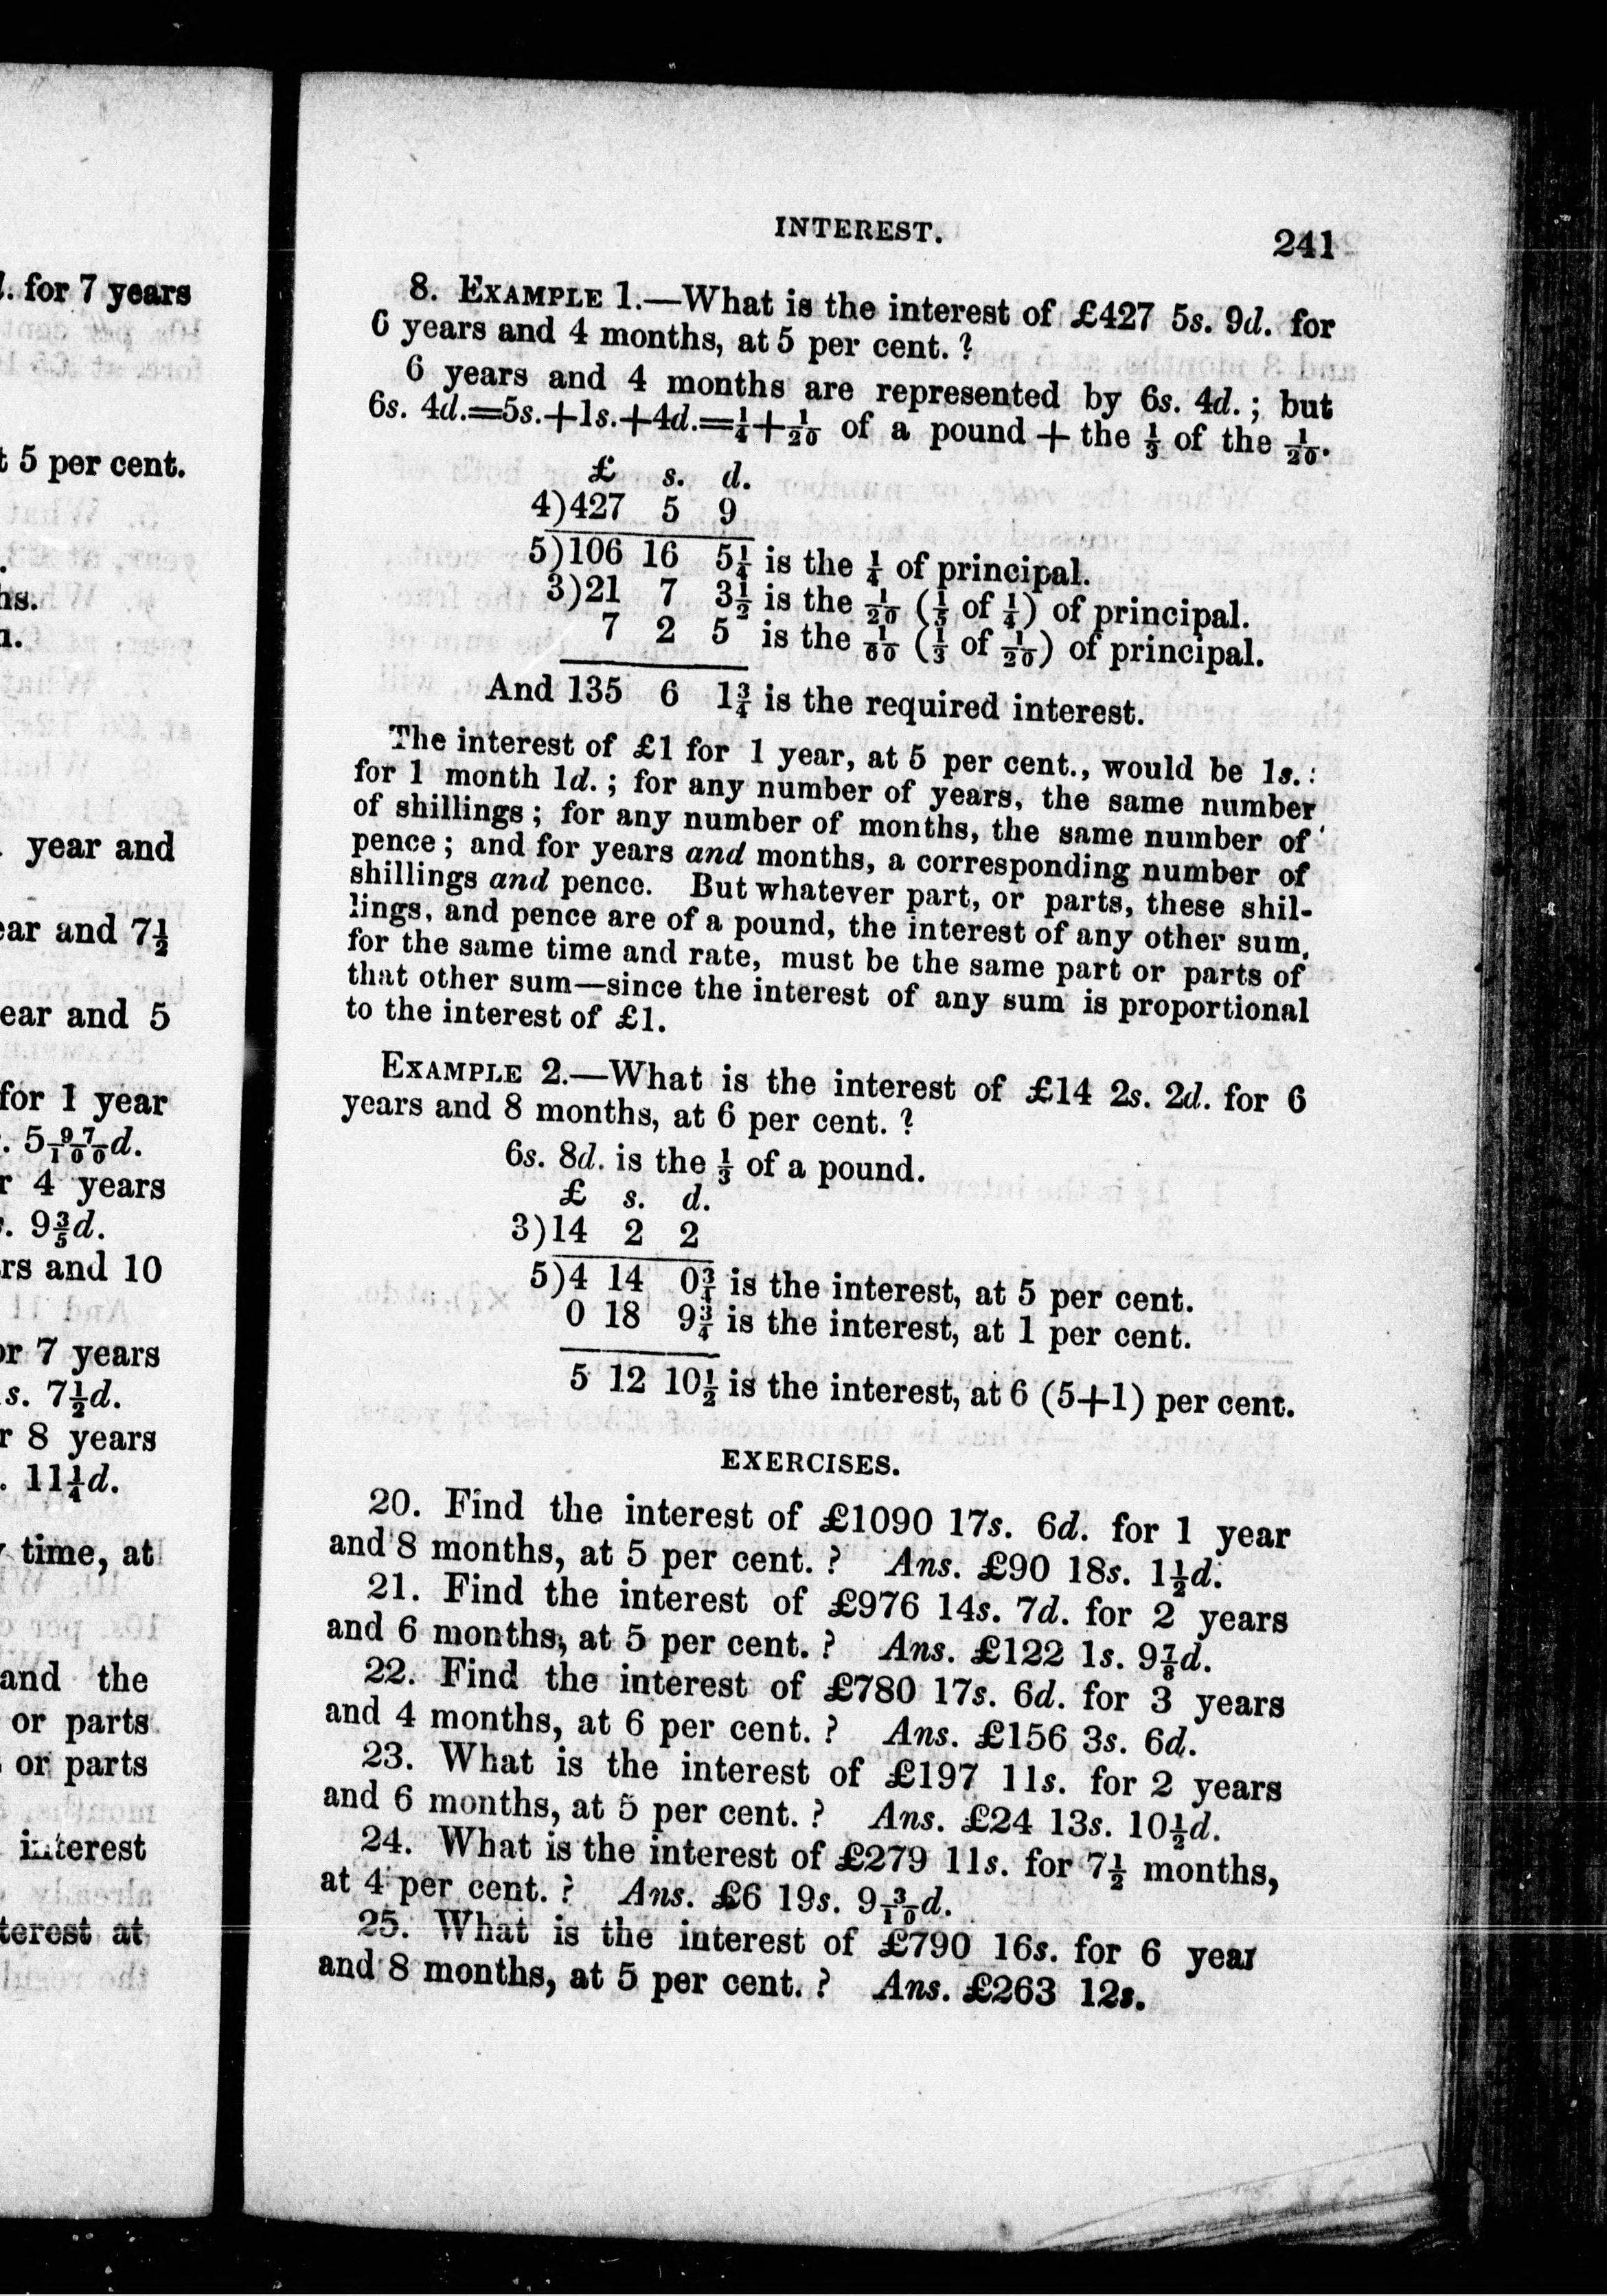 . for 7 years
5 per cent.
year and
ear and 7½
ear and 5
for 1 year
. 5 97/100d.
4 years
. 9⅗d.
rs and 10
or 7 years
s. 7½d.
r 8 years
. 11¼d.
time, at
and the
or parts
or parts
interest
terest at
INTEREST.
241
8. EXAMPLE 1.—What is the interest of £427 5s. 9d. for
6 years and 4 months, at 5 per cent. ?
6 years and 4 months are represented by 6s. 4d. ; but
6s. 4d.=5s.+1s.+4d.=¼+1/20 of a pound + the ⅓ of the 1/20.
£ s. d.
4)427 5 9
5)106 16 5¼ is the ¼ of principal.
3)21 7 3½ is the 1/20 (⅕ of ¼) of principal.
7 2 5 is the 1/60 (⅓ of 1/20) of principal.
And 135 6 1¾ is the required interest.
The interest of £1 for 1 year, at 5 per cent., would be 1s. :
for 1 month 1d. ; for any number of years, the same number
of shillings ; for any number of months, the same number of
pence ; and for years and months, a corresponding number of
shillings and pence. But whatever part, or parts, these shil-
lings, and pence are of a pound, the interest of any other sum,
for the same time and rate, must be the same part or parts of
that other sum—since the interest of any sum is proportional
to the interest of £1.
EXAMPLE 2.—What is the interest of £14 2s. 2d. for 6
years and 8 months, at 6 per cent. ?
6s. 8d. is the ⅓ of a pound.
£ s. d.
3)14 2 2
5)4 14 0¾ is the interest, at 5 per cent.
0 18 9¾ is the interest, at 1 per cent.
5 12 10½ is the interest, at 6 (5+1) per cent.
EXERCISES.
20. Find the interest of £1090 17s. 6d. for 1 year
and 8 months, at 5 per cent. ? Ans. £90 18s. 1½d.
21. Find the interest of £976 14s. 7d. for 2 years
and 6 months, at 5 per cent. ? Ans. £122 1s. 9⅞d.
22. Find the interest of £780 17s. 6d. for 3 years
and 4 months, at 6 per cent. ? Ans. £156 3s. 6d.
23. What is the interest of £197 11s. for 2 years
and 6 months, at 5 per cent. ? Ans. £24 13s. 10½d.
24. What is the interest of £279 11s. for 7½ months,
at 4 per cent. ? Ans. £6 19s. 9 3/10d.
25. What is the interest of £790 16s. for 6 year
and 8 months, at 5 per cent. ? Ans. £263 12s.